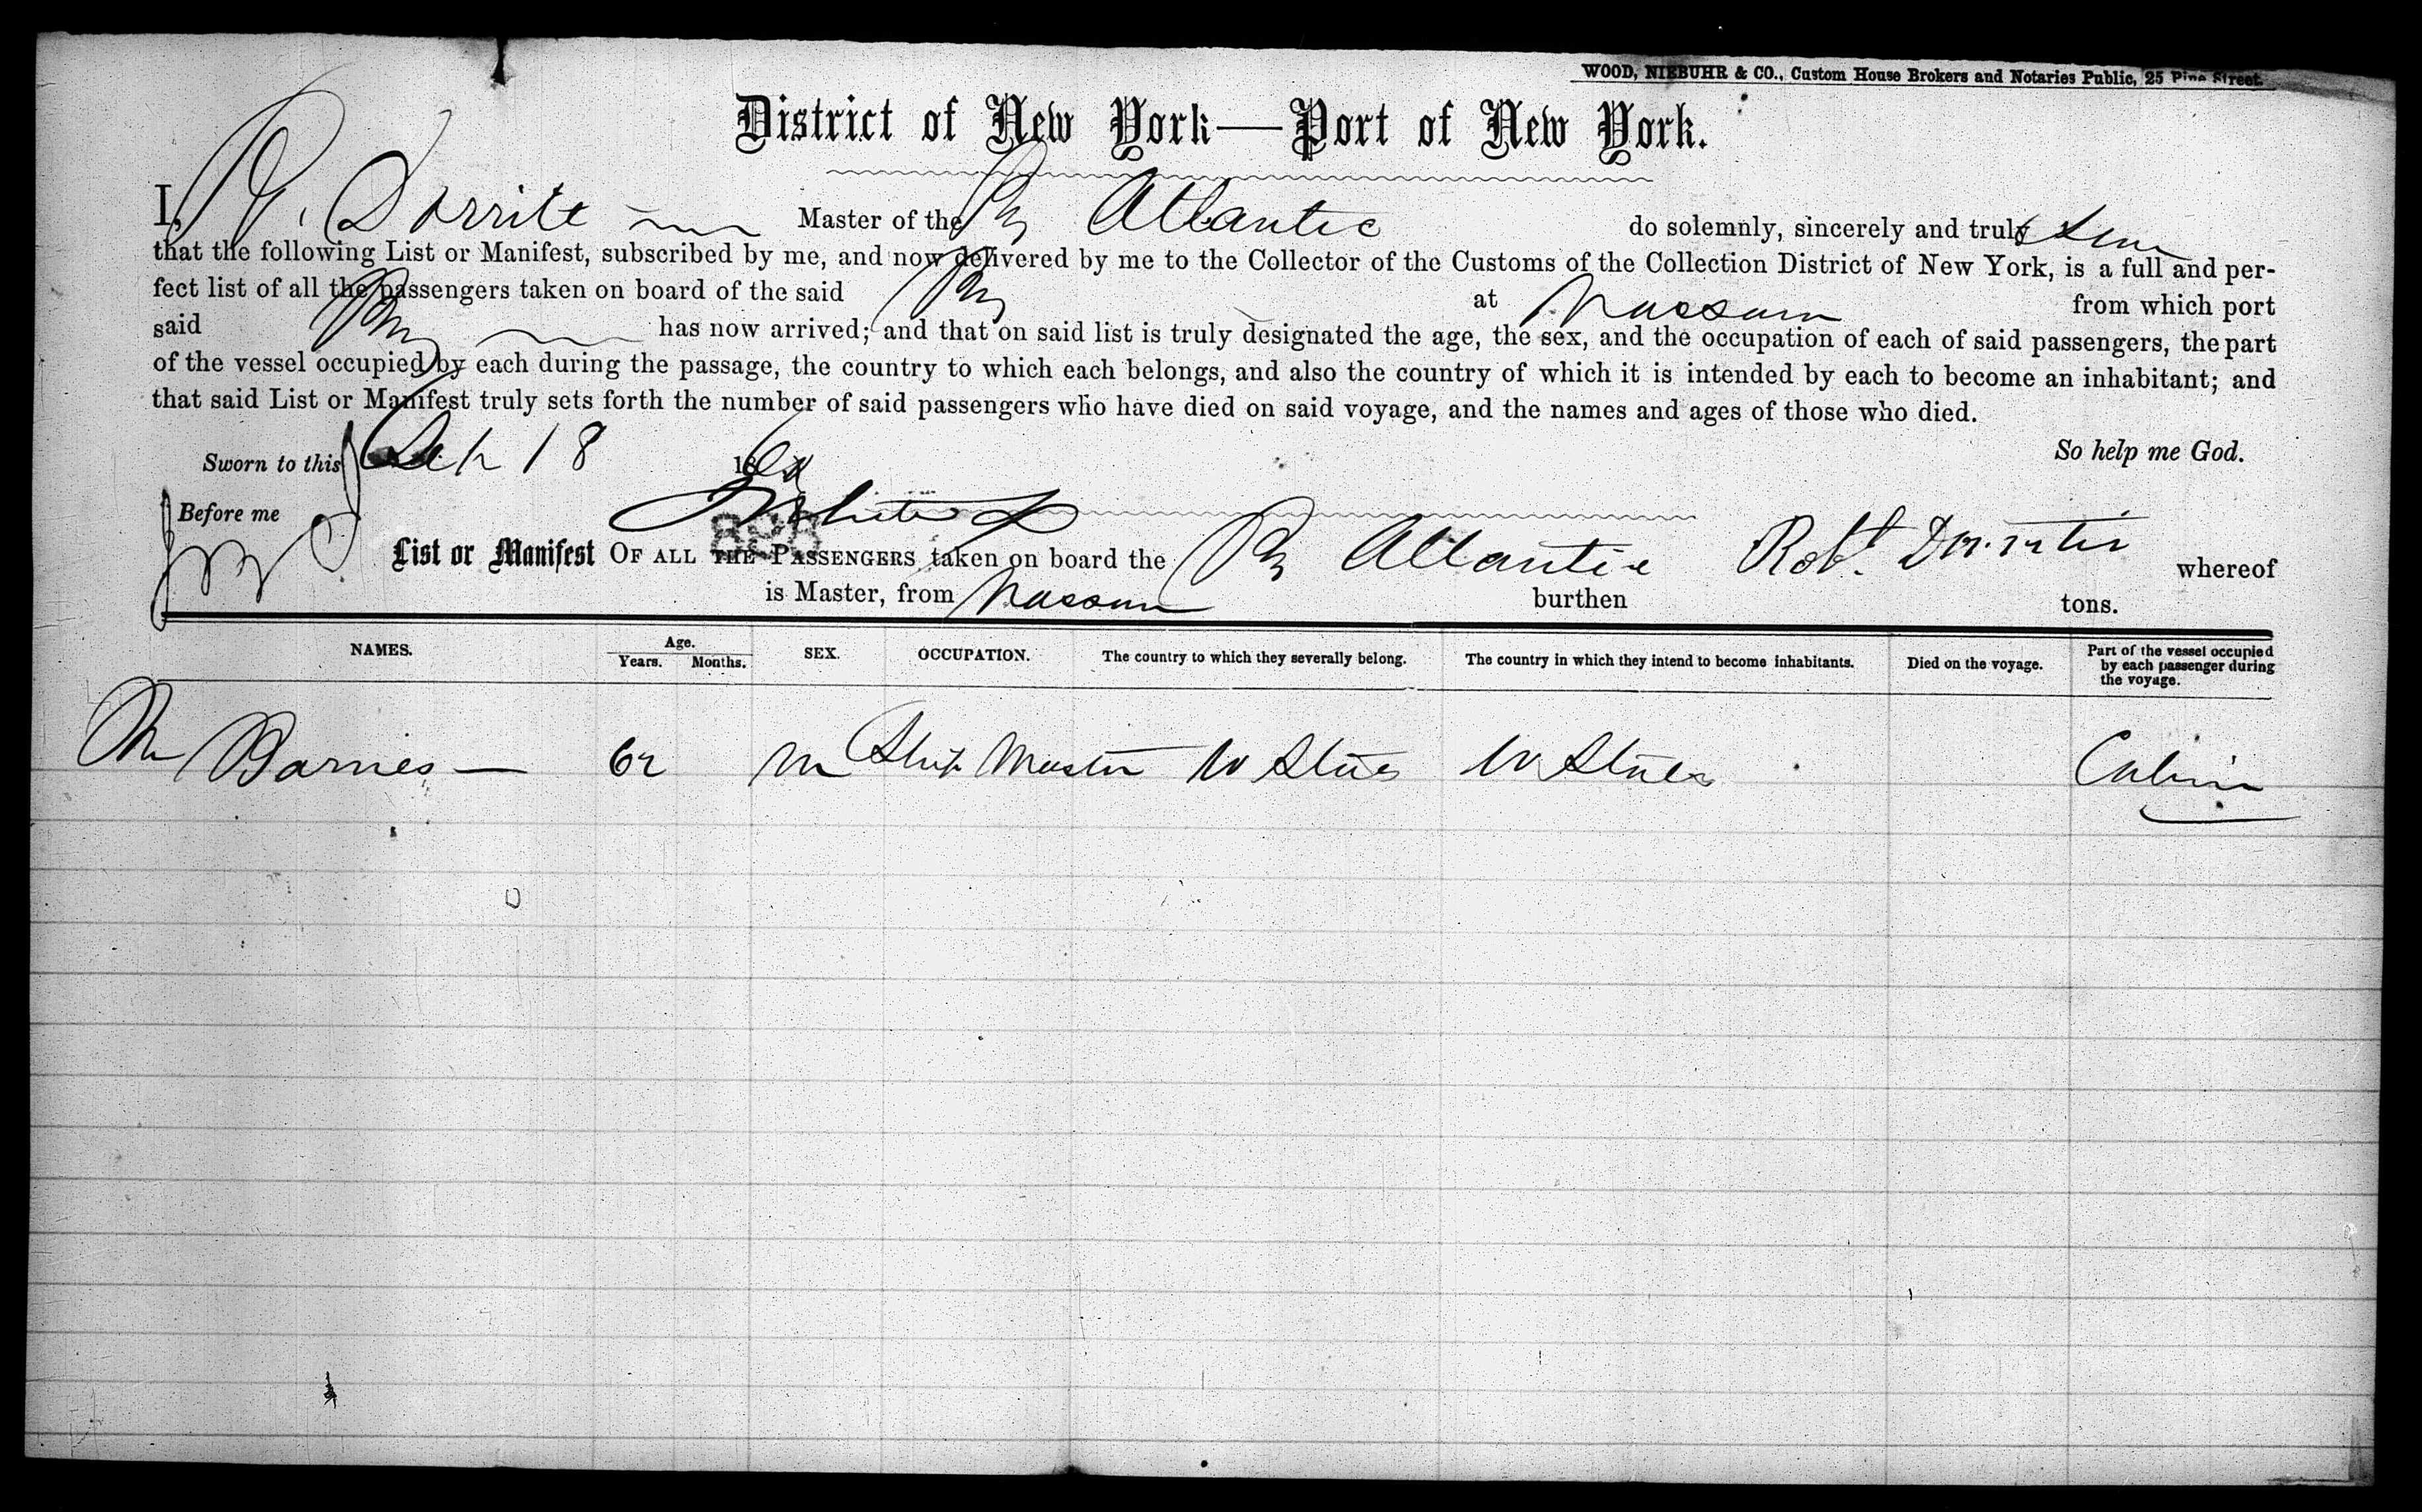 WOOD, NIEBUHR & CO., Custom House Brokers and Notaries Public, 25 Pine Street.
District of New York—Port of New York.
I, Master of the Atlantic do solemnly, sincerely and truly
that the following List or Manifest, subscribed by me, and now delivered by me to the Collector of the Customs of the Collection District of New York, is a full and per-
fect list of all the passengers taken on board of the said at Nassau from which port
said has now arrived; and that on said list is truly designated the age, the sex, and the occupation of each of said passengers, the part
of the vessel occupied by each during the passage, the country to which each belongs, and also the country of which it is intended by each to become an inhabitant; and
that said List or Manifest truly sets forth the number of said passengers who have died on said voyage, and the names and ages of those who died.
Sworn to this 18 So help me God.
Before me
List or Manifest OF ALL THE PASSENGERS taken on board the Atlantic Robt. whereof
is Master, from Nassau burthen tons.
NAMES. Age. Years. Months. SEX. OCCUPATION. The country to which they severally belong. The country in which they intend to become inhabitants. Died on the voyage. Part of the vessel occupied by each passenger during the voyage.
Barnes — M Ship Master U States U States Cabin